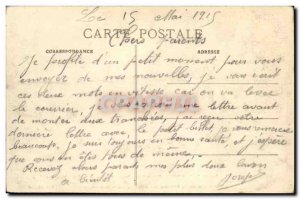 Le 15 Mai 1915
CARTE POSTALE
Chers Parents
CORRESPONDANCE ADRESSE
Je profite d'un petit moment pour vous
envoyer de mes nouvelles, je vous écris
ces deux mots en vitesse car on va lever
le courrier, je vous une lettre avant
de monter aux tranchées, j'ai reçu votre
dernière lettre avec le petit billet, je vous remercie
beaucoup, je suis toujours en bonne santé, et j'espère
que vous en êtes tous de même,
Recevez mes parents mes plus doux baisers
a bientôt